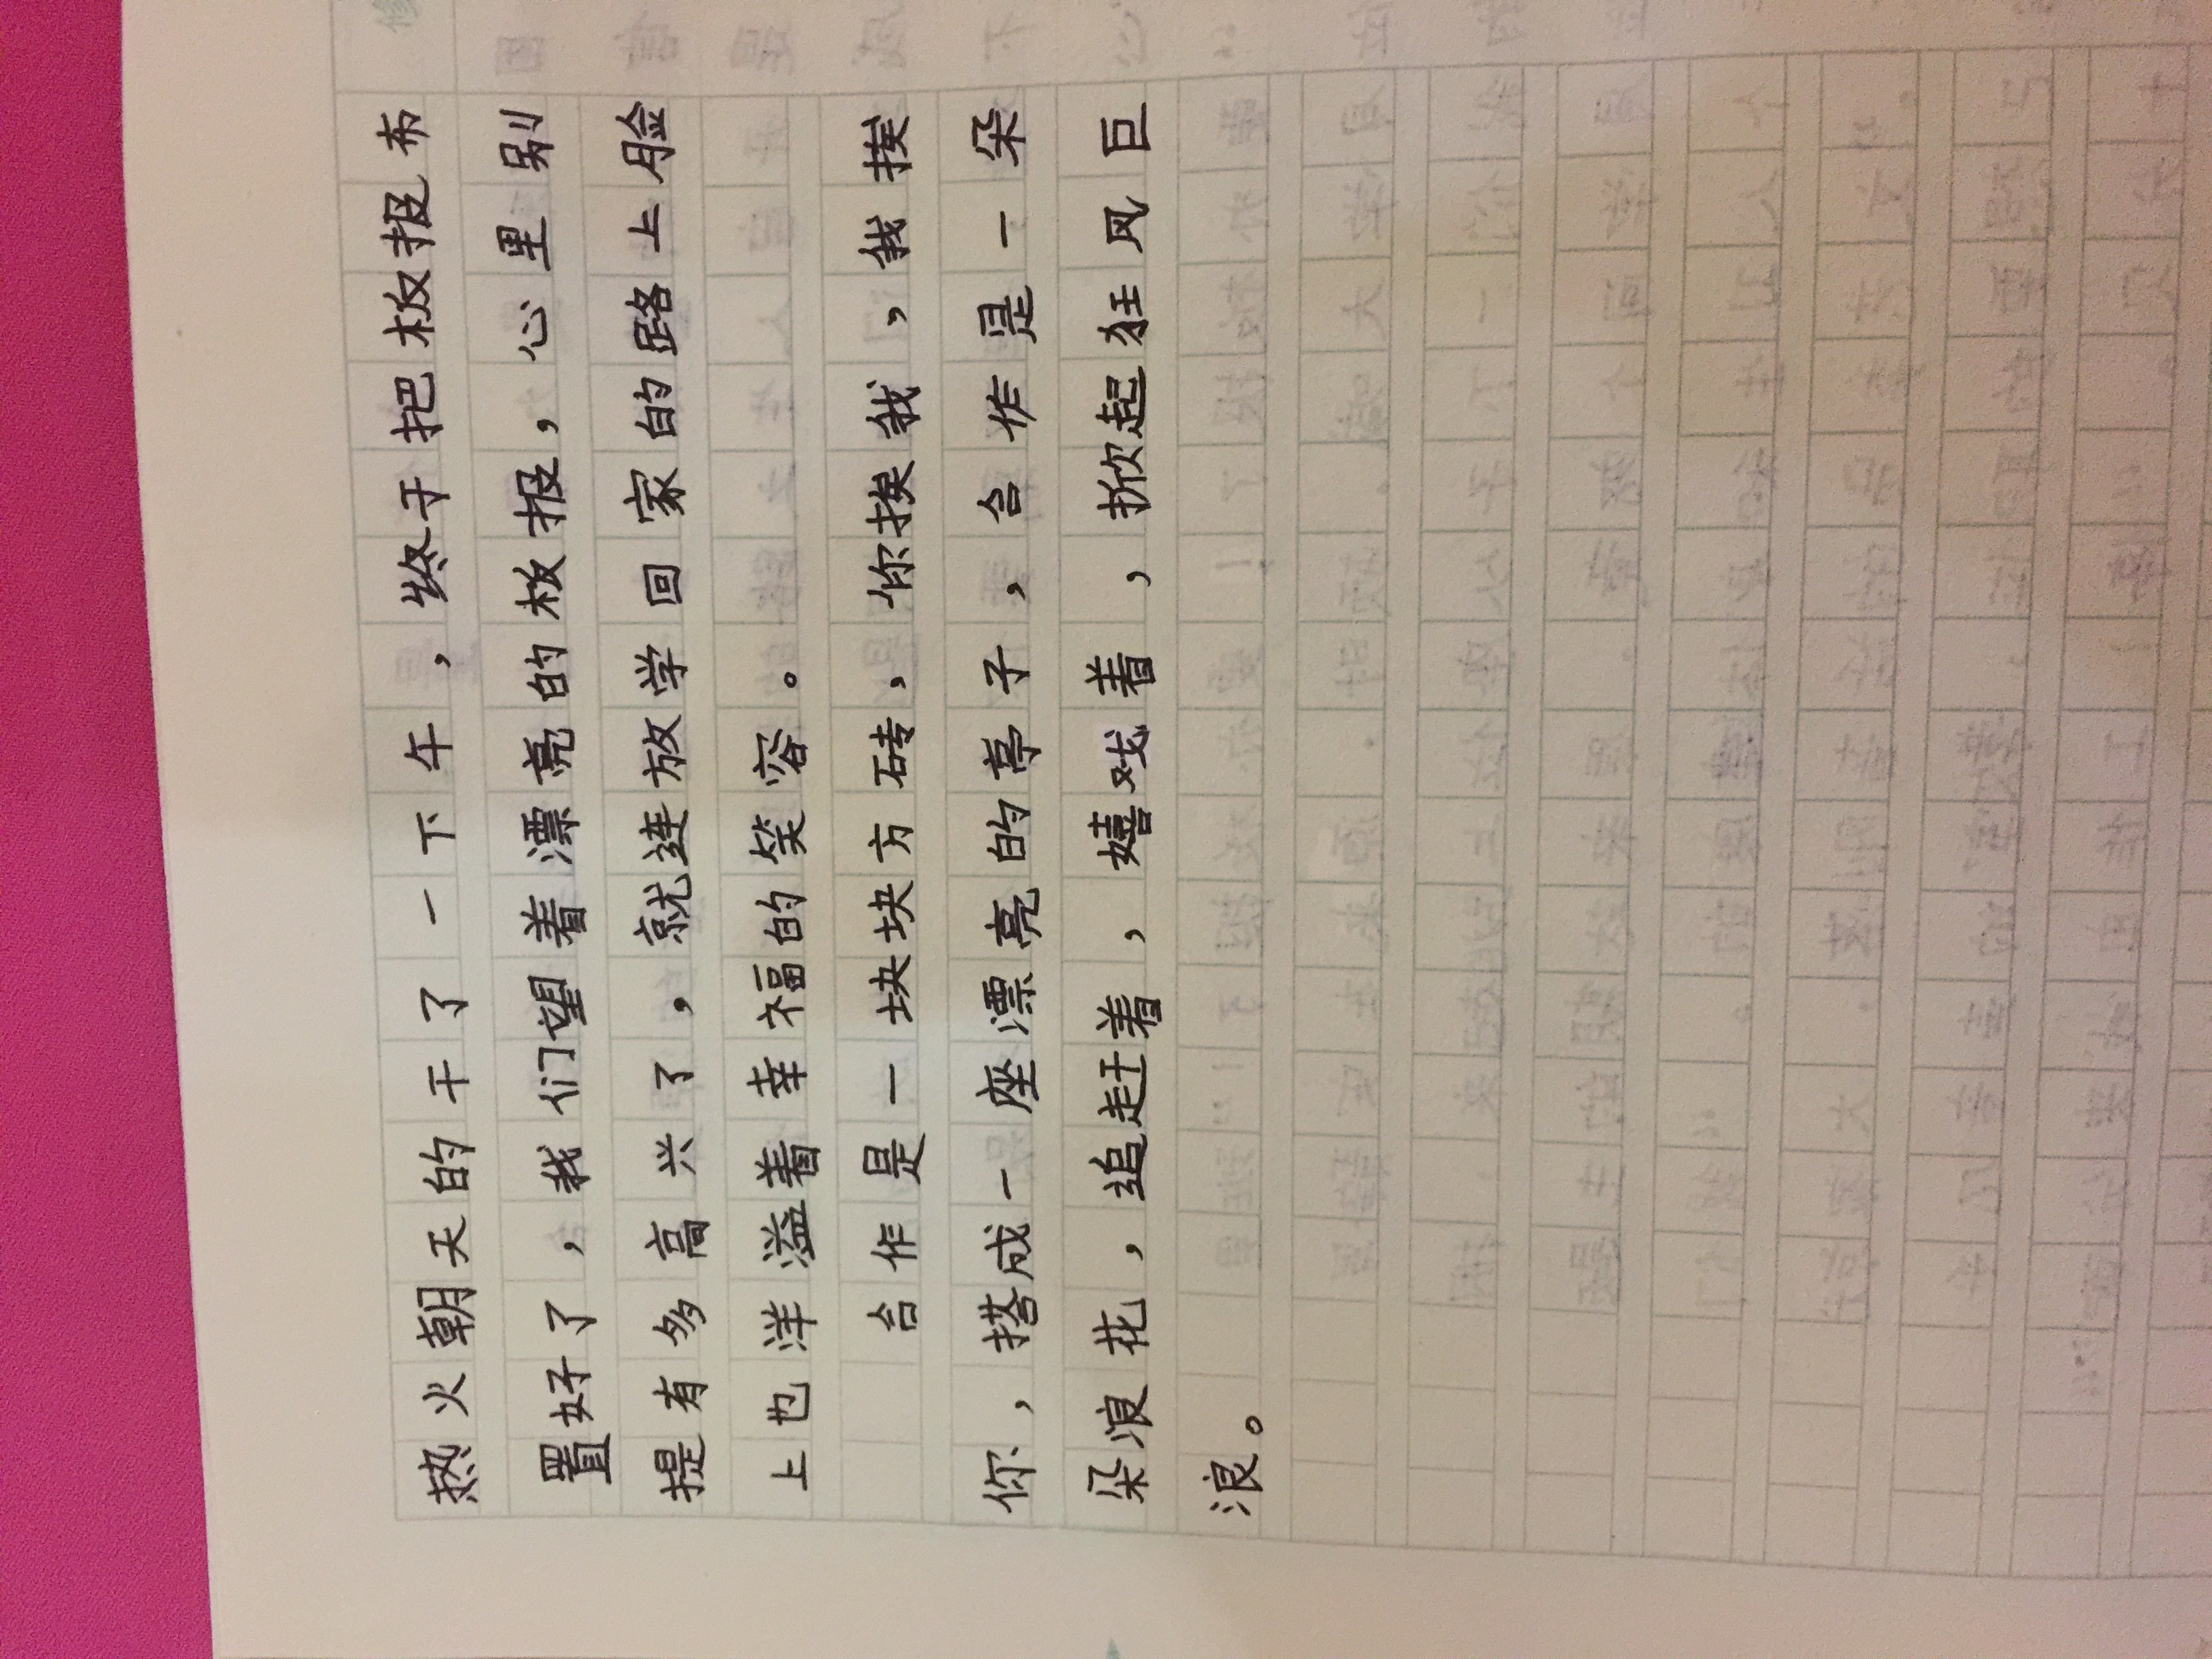 热火朝天的干了一下午，终于把板报布
置好了，我们望着漂亮的板报，心里别
提有多高兴了，就连放学回家的路上脸
上也洋溢着幸福的笑容。
合作是一块块方砖，你挨我，我挨
你，搭成一座漂亮的亭子，合作是一朵
朵浪花，追赶着，嬉戏着，掀起狂风巨
浪。